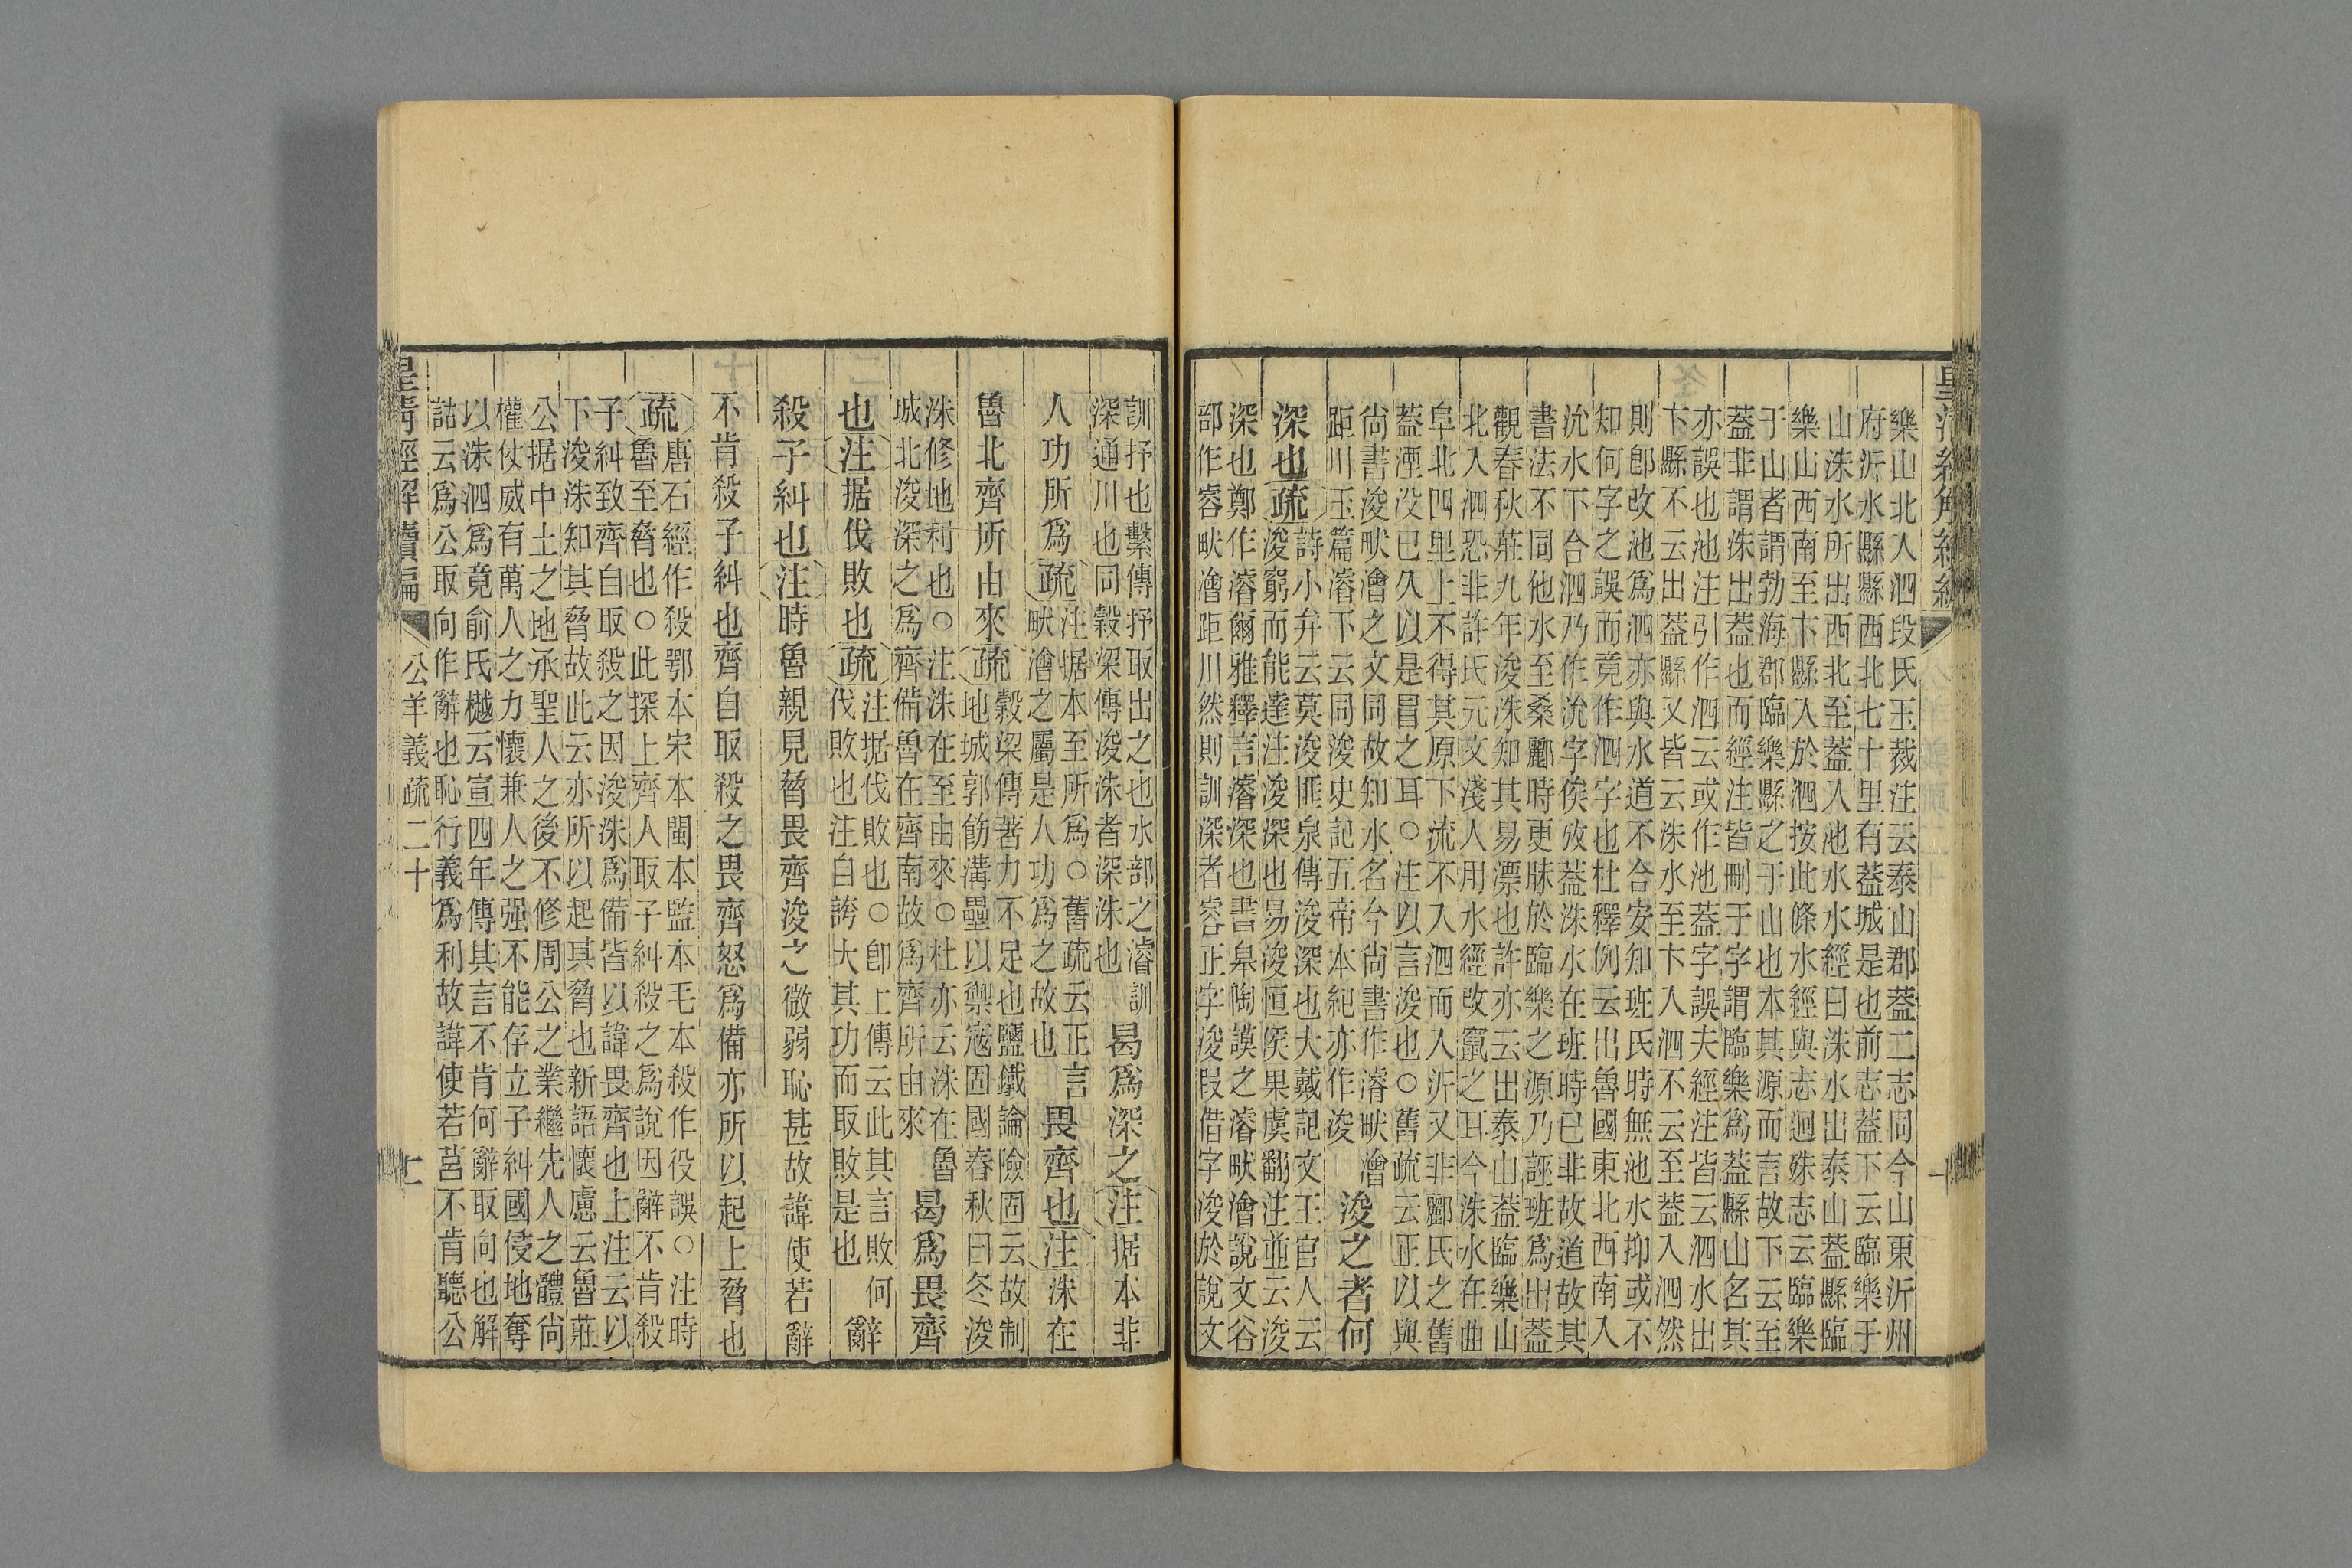 皇清經解續編
樂山北入泗段氏玉裁注云泰山郡蓋二志同今山東沂州
府沂水縣縣西北七十里有蓋城是也前志蓋下云臨樂于
山洙水所出西北至蓋入池水水經曰洙水出泰山蓋縣臨
樂山西南至卞縣入於泗按此條水經與志迥殊志云臨樂
于山者謂勃海郡臨樂縣之于山也本其源而言故下云至
蓋非謂洙出蓋也而經注皆刪于字謂臨樂爲蓋縣山名其
亦誤也池注引作泗云或作池蓋字誤夫經注皆云泗水出
卞縣不云出蓋縣又皆云洙水至卞入泗不云至蓋入泗然
則卽改池爲泗亦與水道不合安知班氏時無池水抑或不
知何字之誤而竟作泗字也杜釋例云出魯國東北西南入
沇水下合泗乃作沇字俟攷蓋洙水在班時已非故道故其
書法不同他水至桑酈時更眛於臨樂之源乃誣班爲出蓋
觀春秋莊九年浚洙知其易漂也許亦云出泰山蓋臨樂山
北入泗恐非許氏元文淺人用水經改竄之耳今洙水在曲
阜北四里上不得其原下流不入泗而入沂又非酈氏之舊
蓋湮没已久以是冒之耳○注以言浚也○舊疏云正以與
尚書浚畎澮之文同故知水名今尚書作濬畎澮
距川玉篇濬下云同浚史記五帝本紀亦作浚
浚之者何
深也疏
詩小弁云莫浚匪泉傳浚深也大戴記文王官人云
浚窮而能達注浚浚深也易浚恒侯果虞翻注並云浚
深也鄭作濬爾雅釋言濬深也書皋陶謨之濬畎澮說文谷
部作容畎澮距川然則訓深者容正字浚叚借字浚於說文
訓抒也繫傳抒取出之也水部之濬訓
深通川也同穀梁傳浚洙者深洙也
曷爲深之注据本非
人功所爲疏
注据本至所爲○舊疏云正言
畎澮之屬是人功爲之故也
畏齊也注洙在
魯北齊所由來疏
穀梁傳著力不足也鹽鐵論險固云故制
地城郭飭溝壘以禦寇固國春秋曰冬浚
洙修地利也○注洙在至由來○杜亦云洙在魯
城北浚深之爲齊備魯在齊南故爲齊所由來
曷爲畏齊
也注据伐敗也疏
注据伐敗也○卽上傳云此其言敗何
伐敗也注自誇大其功而取敗是也
辭
殺子糾也注時魯親見脅畏齊浚之微弱恥甚故諱使若辭
不肯殺子糾也齊自取殺之畏齊怒爲備亦所以起上脅也
疏
唐石經作殺鄂本宋本閩本監本毛本殺作役誤○注時
魯至脅也○此探上齊人取子糾殺之爲說因辭不肯殺
子糾致齊自取殺之因浚洙爲備皆以諱畏齊也上注云以
下浚洙知其脅故此云亦所以起其脅也新語懷慮云魯莊
公据中土之地承聖人之後不修周公之業繼先人之體尚
權仗威有萬人之力懷兼人之强不能存立子糾國侵地奪
以洙泗爲竟俞氏樾云宣四年傳其言不肯何辭取向也解
詁云爲公取向作辭也恥行義爲利故諱使若莒不肯聽公
皇清經解續編
公羊義疏二十
七